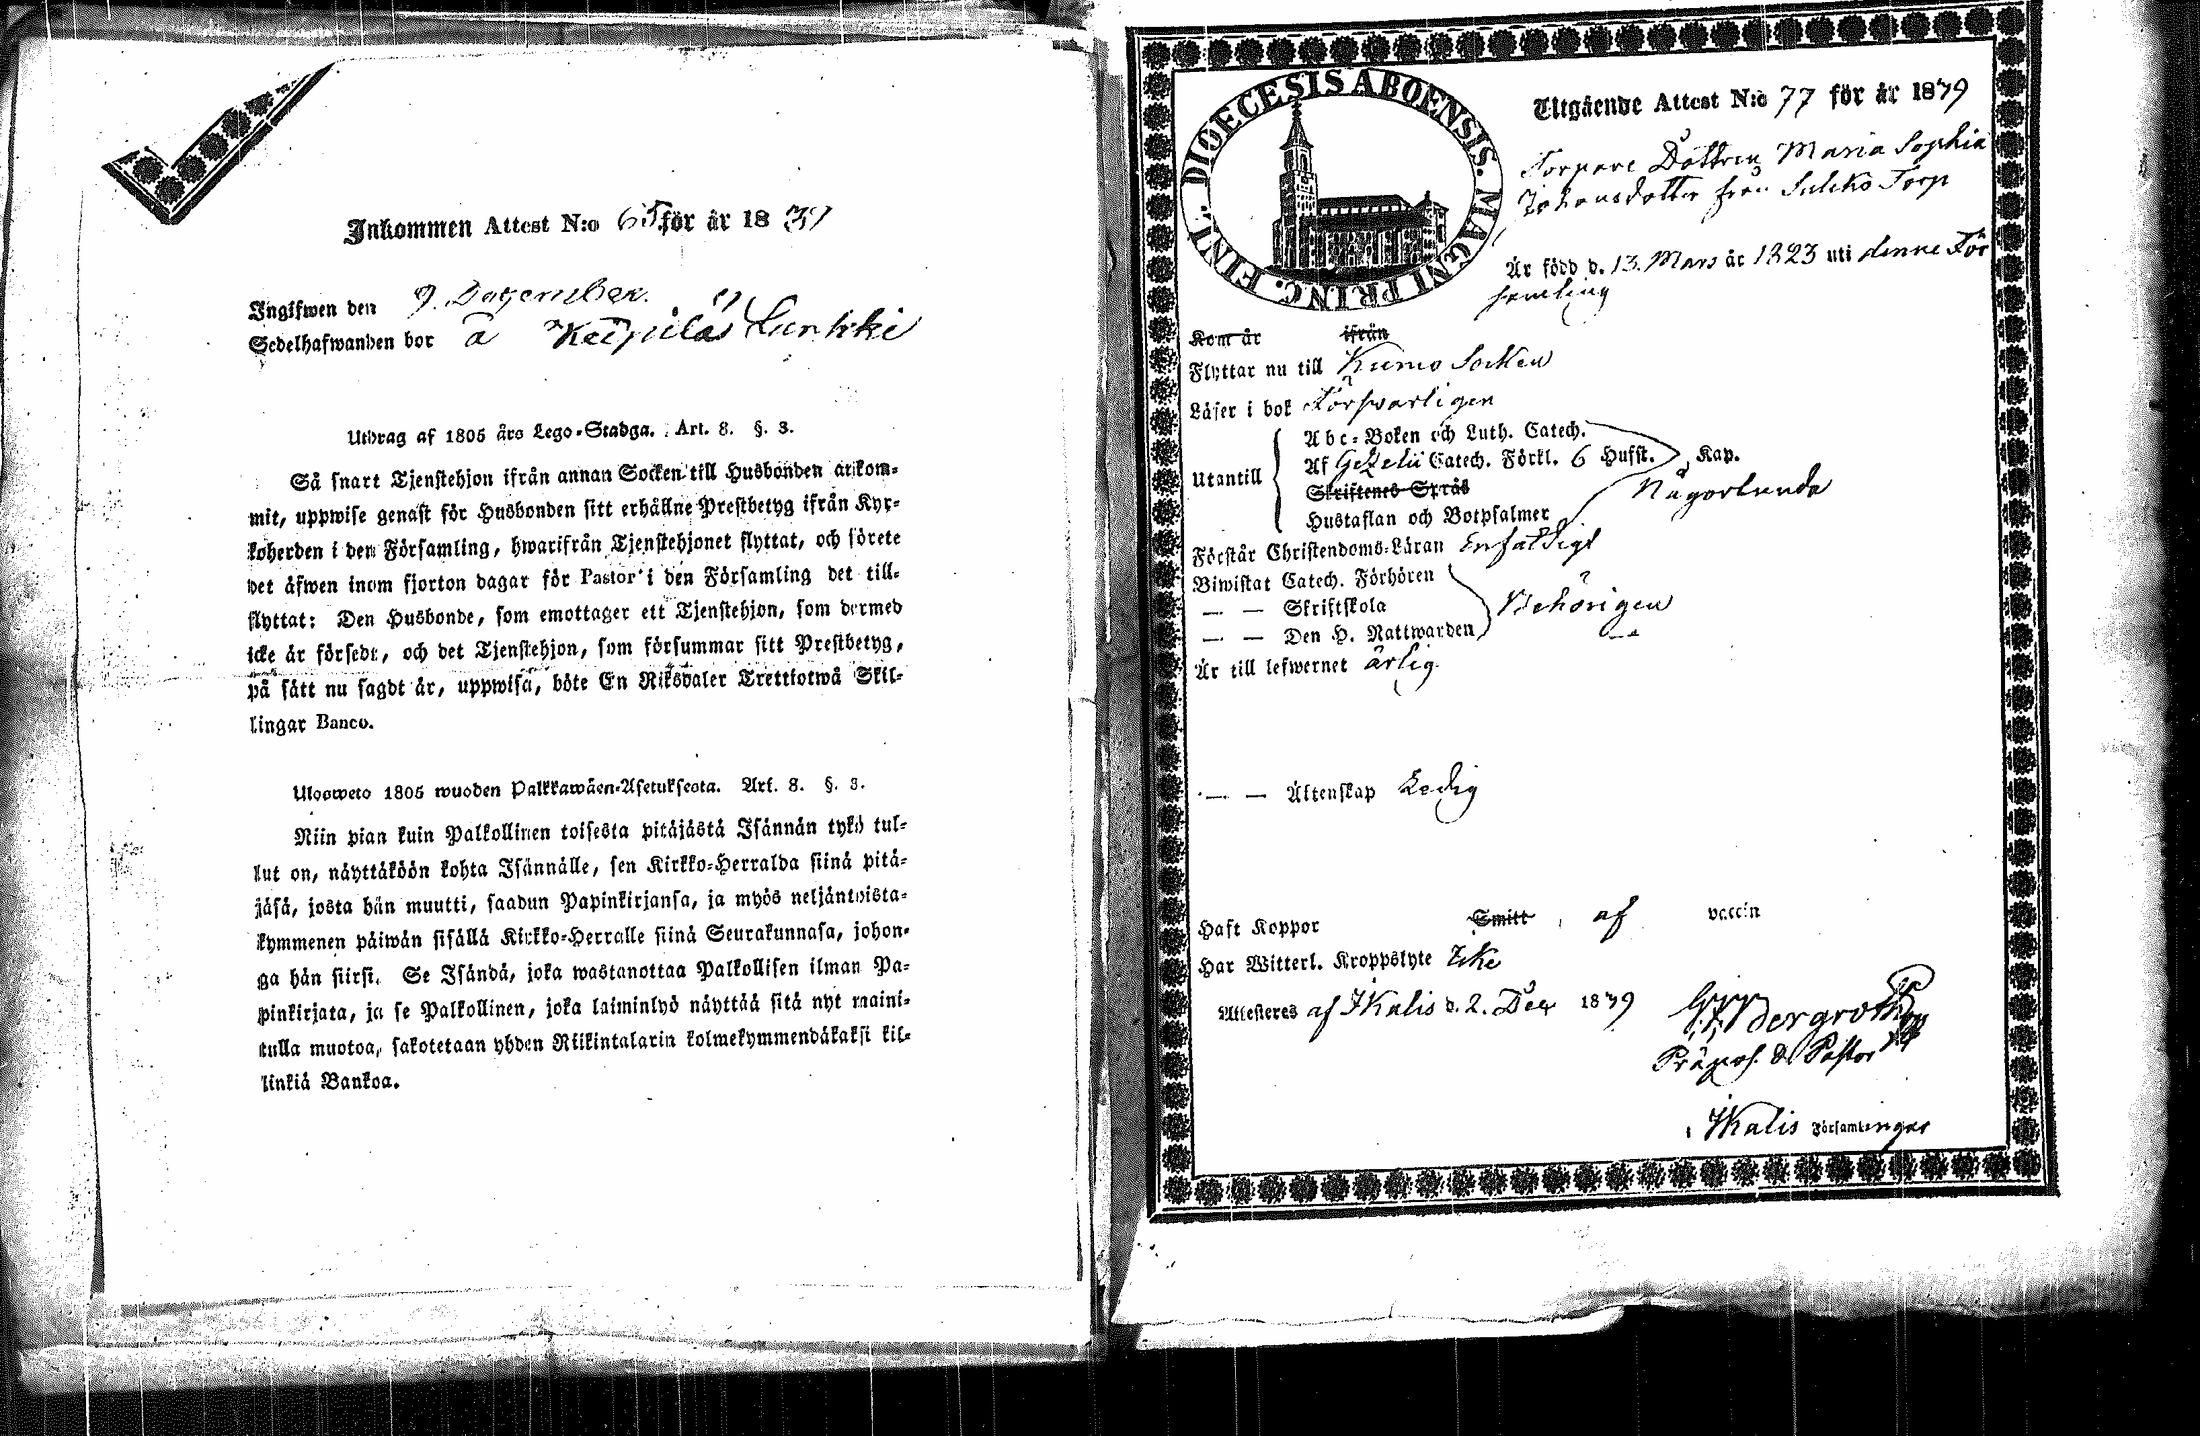 Inkommen Attest N:o 65 för år 1839
Ingifwen den 9. December.
Sedelhafwanden bor å Keipilä Lunkki
Utdrag af 1805 års Lego-Stadga. Art. 8. §. 3.
Så snart Tjenstehjon ifrån annan Socken till Husbonden ankom-
mit, uppwise genast för Husbonden sitt erhållne Prestbetyg ifrån Kyr-
koherden i den Församling, hwarifrån Tjenstehjonet flyttat, och förete
det äfwen inom fjorton dagar för Pastor i den Församling det till-
flyttat: Den Husbonde, som emottager ett Tjenstehjon, som dermed
icke är försedt, och det Tjenstehjon, som försummar sitt Prestbetyg,
på sätt nu sagdt är, uppwisa, böte En Riksdaler Trettiotwå Skil-
lingar Banco.
Ulosweto 1805 wuoden Palkkawäen-Asetuksesta. Art. 8. §. 3.
Niin pian kuin Palkollinen toisesta pitäjästä Isännän tykö tul-
lut on, näyttäköön kohta Isännälle, sen Kirkko-Herralda siinä pitä-
jäsä, josta hän muutti, saadun Papinkirjansa, ja myös neljäntoista-
kymmenen päiwän sisällä Kirkko-Herralle siinä Seurakunnasa, johon-
ga hän siirsi. Se Isändä, joka wastanottaa Palkollisen ilman Pa-
pinkirjata, ja se Palkollinen, joka laiminlyö näyttää sitä nyt maini-
tulla muotoa, sakotetaan yhden Riikintalarin kolmekymmendäkaksi kil-
linkiä Bankoa.
DIOECESIS ABOENSIS. MAGNI PRINC. FINL.
Utgående Attest N:o 77 för år 1839
Torpare Dottren Maria Sophia
Johansdotter från Sulcko Torp
Är född d. 13. Mars år 1823 uti denne För
samling
Kom år ifrån
Flyttar nu till Kumo Socken
Läser i bok Förswarligen
Utantill
Abc-Boken och Luth. Catech.
Af Gezelii Catech. Förkl. 6 Hufst. Kap.
Skriftenes Språk
Någorlunda
Hustaflan och Botpsalmer
Förstår Christendoms-Läran Enfaldigt
Biwistat Catech. Förhören
— — Skriftskola Behörigen
— — Den H. Nattwarden
Är till lefwernet ärlig.
— — Äktenskap Ledig
Haft Koppor Smitt af vaccin
Har Witterl. Kroppslyte Icke
Attesteres af Ikalis d. 2. Dec 1839
Präpos. & Pastor
i Ikalis Församlingar